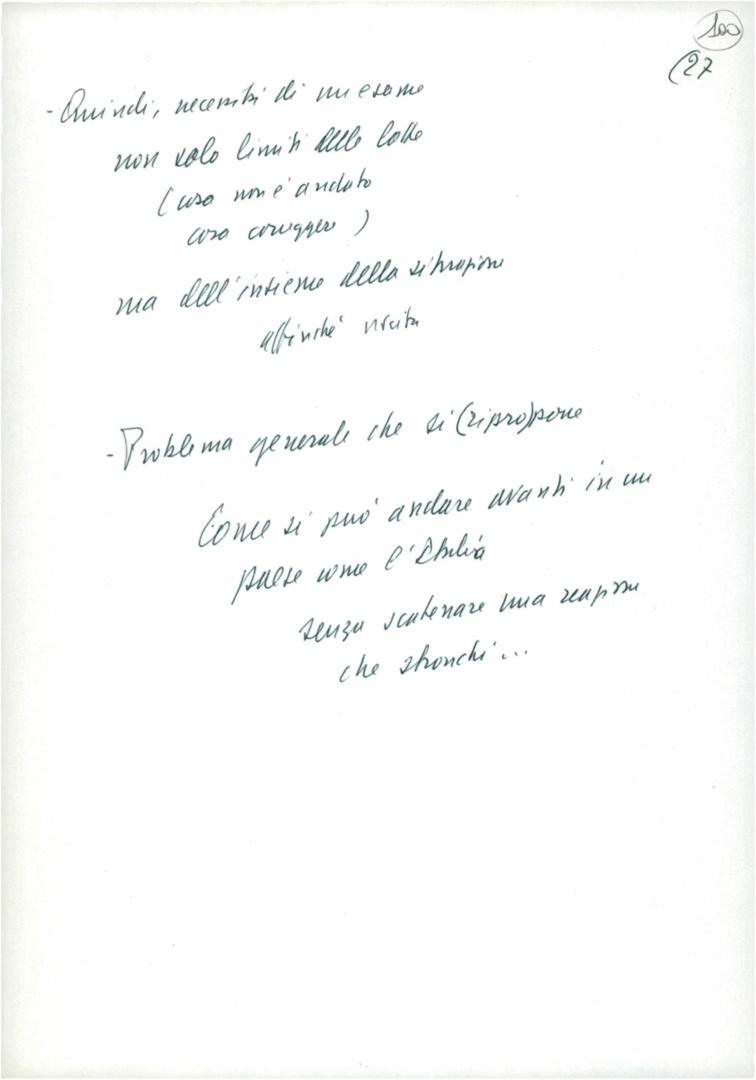 100
(27
- Quindi, necessità di un esame
non solo limiti delle lotte
(cosa non è andato
cosa correggere)
ma dell'insieme della situazione
affinché uscita
- Problema generale che si (ripro)pone
Come si può andare avanti in un
paese come l'Italia
senza scatenare una reazione
che stronchi...